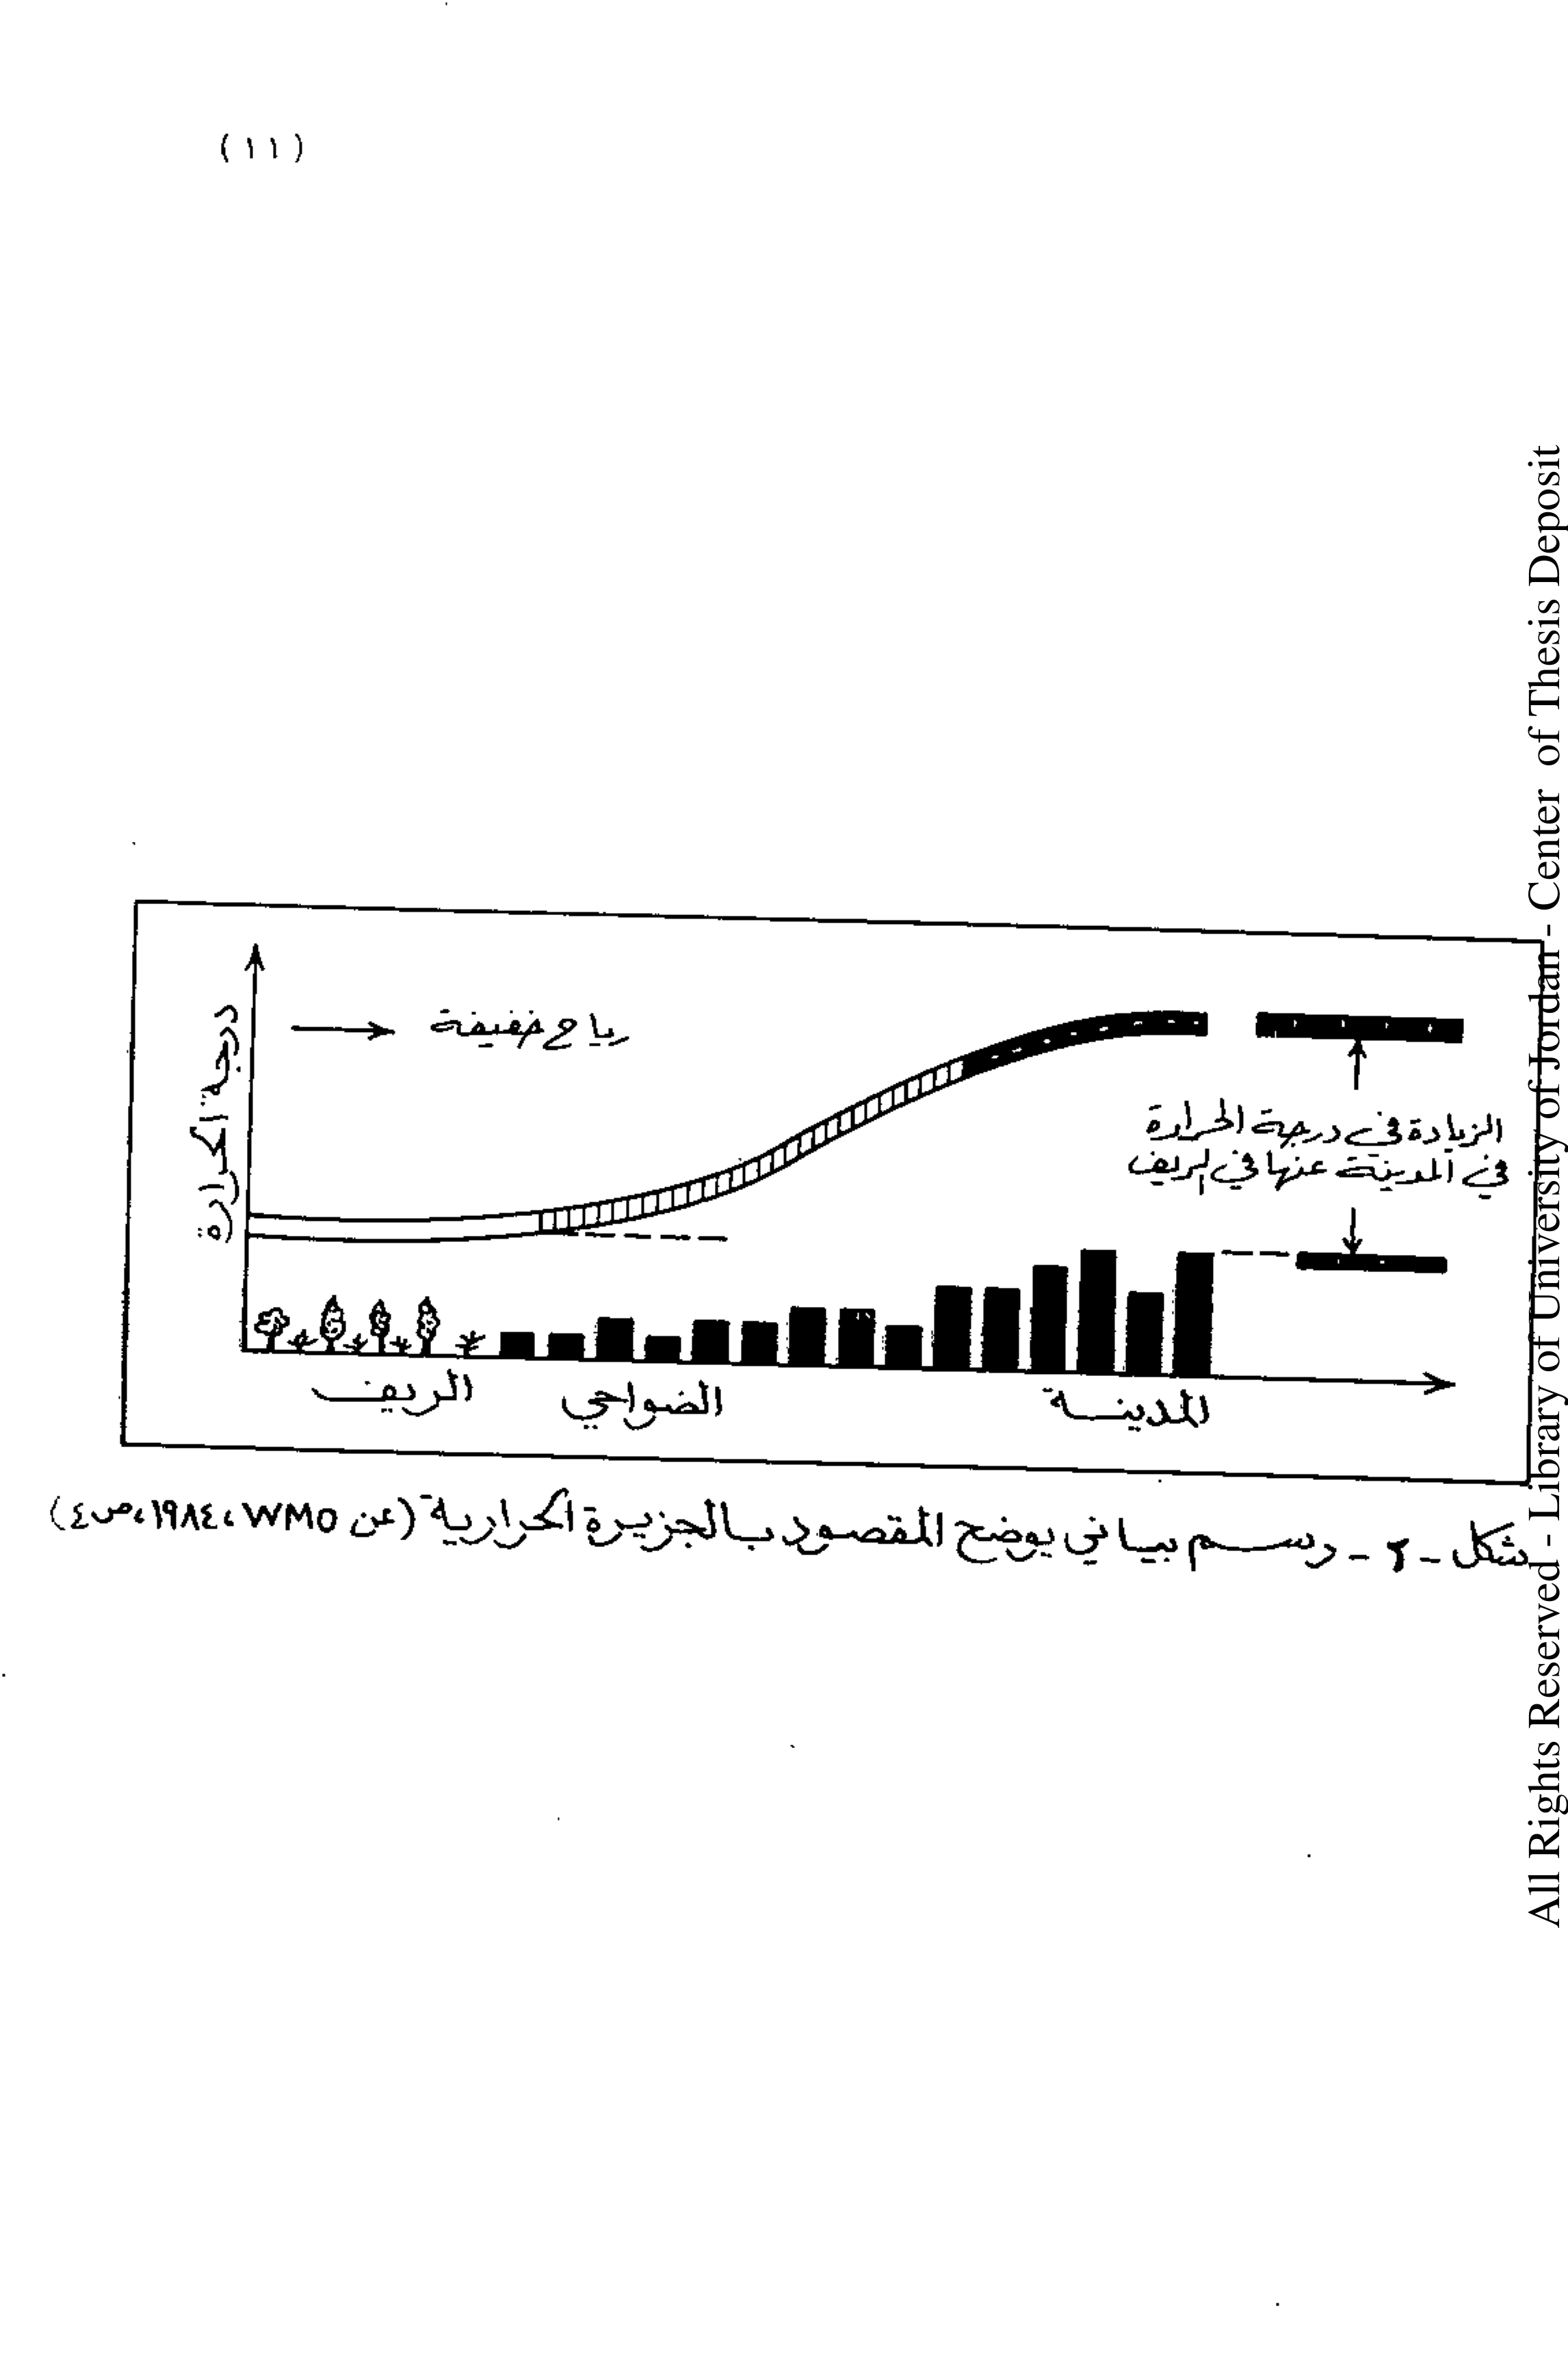 (١١)
رياح خفيفة
درجة الحرارة
الزيادة في درجة الحرارة
في المدينة عنها في الريف
الريف
الضواحي
المدينة
شكل - ٢ - رسم بياني يوضح المقصود بالجزيرة الحرارية (عن WMO، ١٩٨٤، ص٤)
All Rights Reserved - Library of University of Jordan - Center of Thesis Deposit